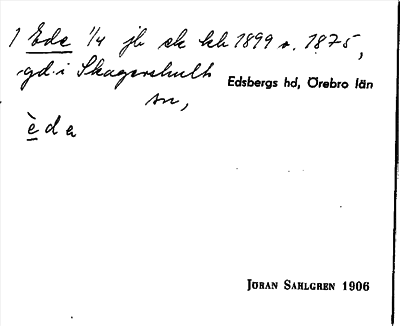 1 Ede 1/4 jb sk kb 1899 s. 1875,
gd. i Skagershults Edsbergs hd, Örebro län
sn,
è d e
JÖRAN SAHLGREN 1906